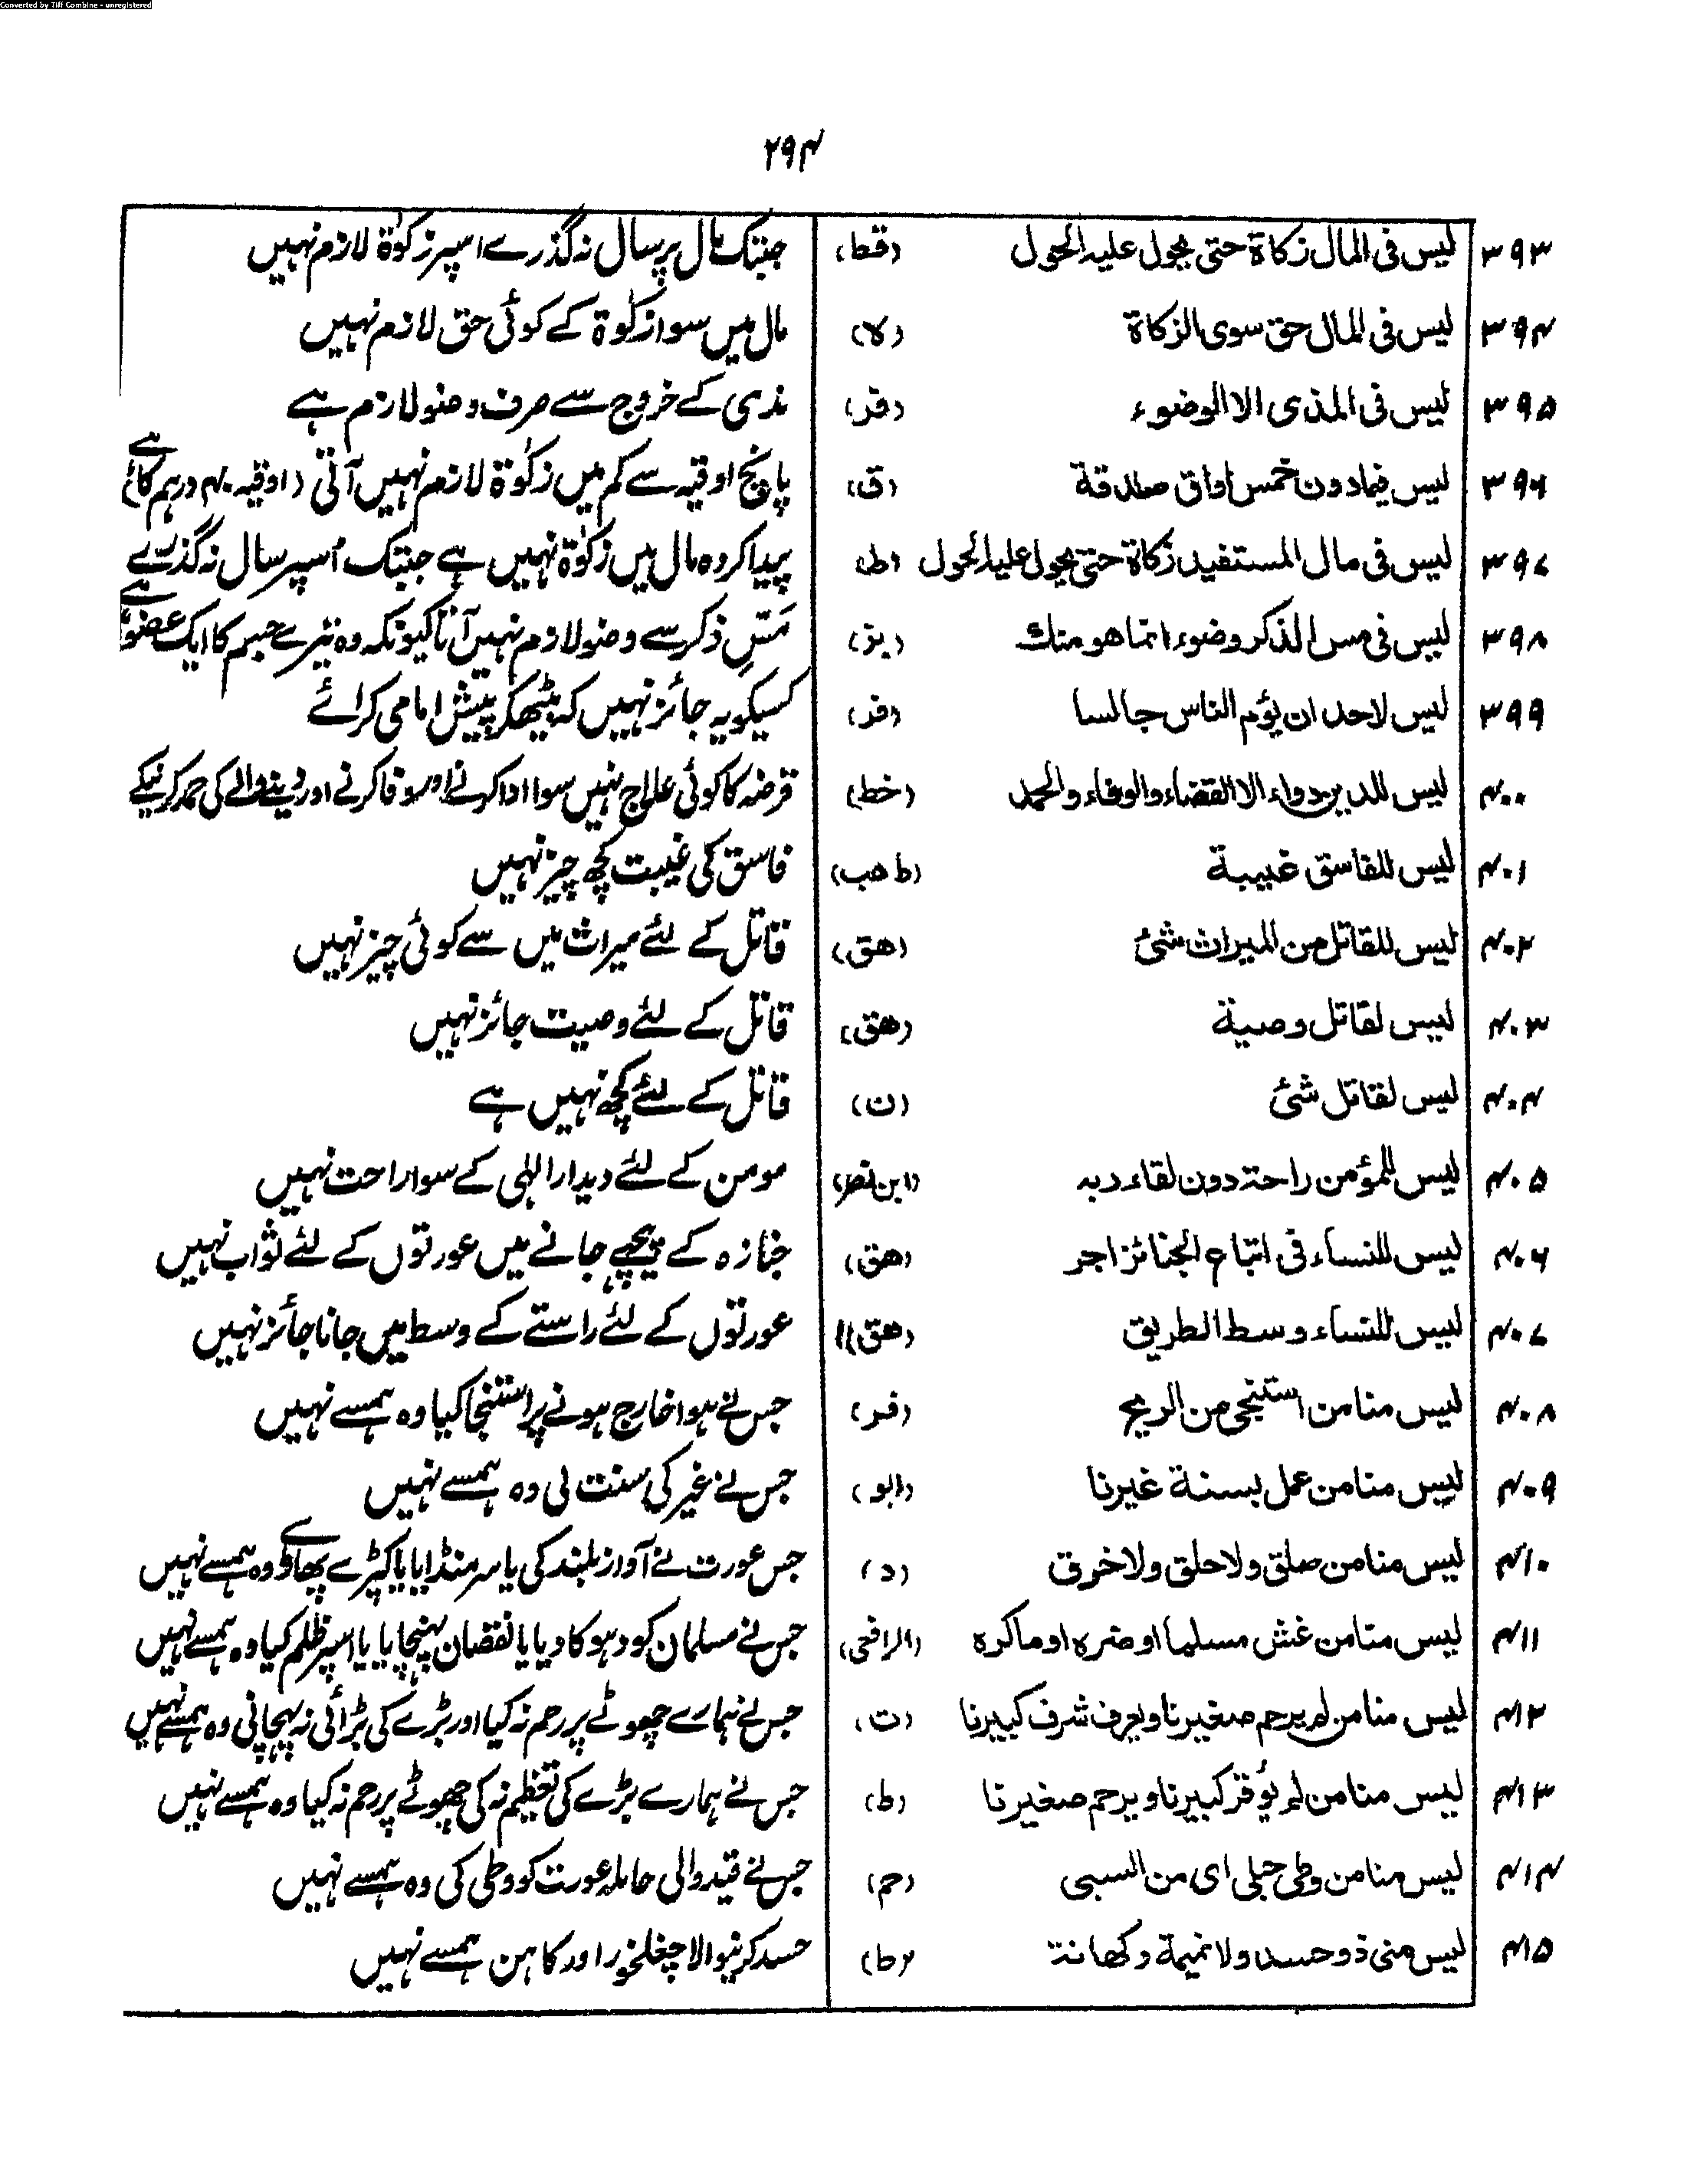 Converted by Tiff Combine - unregistered
۲۹۴
۳۹۳ لیس فی المال زکاة حتی یحول علیه الحول (قط) جبتک مال پر سال نہ گذرے اسپر زکوٰة لازم نہیں
۳۹۴ لیس فی المال حق سوی الزکاة (لا) مال میں سوا زکوٰة کے کوئی حق لازم نہیں
۳۹۵ لیس فی المذی الا الوضوء (فر) مذی کے خروج سے صرف وضو لازم ہے
۳۹۶ لیس فیمادون خمس اواق صدقة (ق) پانچ اوقیہ سے کم میں زکوٰة لازم نہیں آتی (اوقیہ ۴۰ درہم کا ہے)
۳۹۷ لیس فی مال المستفید زکاة حتی یحول علیہ الحول (ط) پیدا کردہ مال میں زکوٰة نہیں ہے جبتک اُسپر سال نہ گذرے
۳۹۸ لیس فی مس الذکر وضوء انما هو منک (یز) مَسِّ ذکر سے وضو لازم نہیں آتا کیونکہ وہ تیرے جسم کا ایک عضو ہے
۳۹۹ لیس لاحد ان یؤم الناس جالسا (فر) کسیکو یہ جائز نہیں کہ بیٹھکر پیش امامی کرائے
۴۰۰ لیس للدین دواء الا القضاء والوفاء والحمد (خط) قرضہ کا کوئی علاج نہیں سوا ادا کرنے اور وفا کرنے اور دینے والے کی حمد کرنیکے
۴۰۱ لیس للفاسق غیبة (ط هب) فاسق کی غیبت کچھ چیز نہیں
۴۰۲ لیس للقاتل من المیراث شئ (هق) قاتل کے لئے میراث میں سے کوئی چیز نہیں
۴۰۳ لیس لقاتل وصیة (هق) قاتل کے لئے وصیت جائز نہیں
۴۰۴ لیس لقاتل شئ (ن) قاتل کے لئے کچھ نہیں ہے
۴۰۵ لیس للمؤمن راحة دون لقاء ربه (ابن نصر) مومن کے لئے دیدار الہٰی کے سوا راحت نہیں
۴۰۶ لیس للنساء فی اتباع الجنائز اجر (هق) جنازہ کے پیچھے جانے میں عورتوں کے لئے ثواب نہیں
۴۰۷ لیس للنساء وسط الطریق (هق) عورتوں کے لئے راستے کے وسط میں جانا جائز نہیں
۴۰۸ لیس منا من استنجی من الریح (فر) جس نے ہوا خارج ہونے پر استنجا کیا وہ ہمسے نہیں
۴۰۹ لیس منا من عمل بسنة غیرنا (ابو) جس نے غیر کی سنت لی وہ ہمسے نہیں
۴۱۰ لیس منا من صلق ولا حلق ولا خرق (د) جس عورت نے آواز بلند کی یا سر منڈایا یا کپڑے پھاڑے وہ ہمسے نہیں
۴۱۱ لیس منا من غش مسلما او ضره او ماکره (الرافعی) جس نے مسلمان کو دہوکا دیا یا نقصان پہنچایا یا اسپر ظلم کیا وہ ہمسے نہیں
۴۱۲ لیس منا من لم یرحم صغیرنا ویعرف شرف کبیرنا (ت) جس نے ہمارے چھوٹے پر رحم نہ کیا اور بڑے کی بڑائی نہ پہچانی وہ ہمسے نہیں
۴۱۳ لیس منا من لم یؤقر کبیرنا ویرحم صغیرنا (ط) جس نے ہمارے بڑے کی تعظیم نہ کی چھوٹے پر رحم نہ کیا وہ ہمسے نہیں
۴۱۴ لیس منا من وطی حبلی ای من السبی (حم) جس نے قید والی حاملہ عورت کو وطی کی وہ ہمسے نہیں
۴۱۵ لیس منی ذو حسد ولا نمیمة وکهانة (ط) حسد کرنیوالا چغلخور اور کاہن ہمسے نہیں